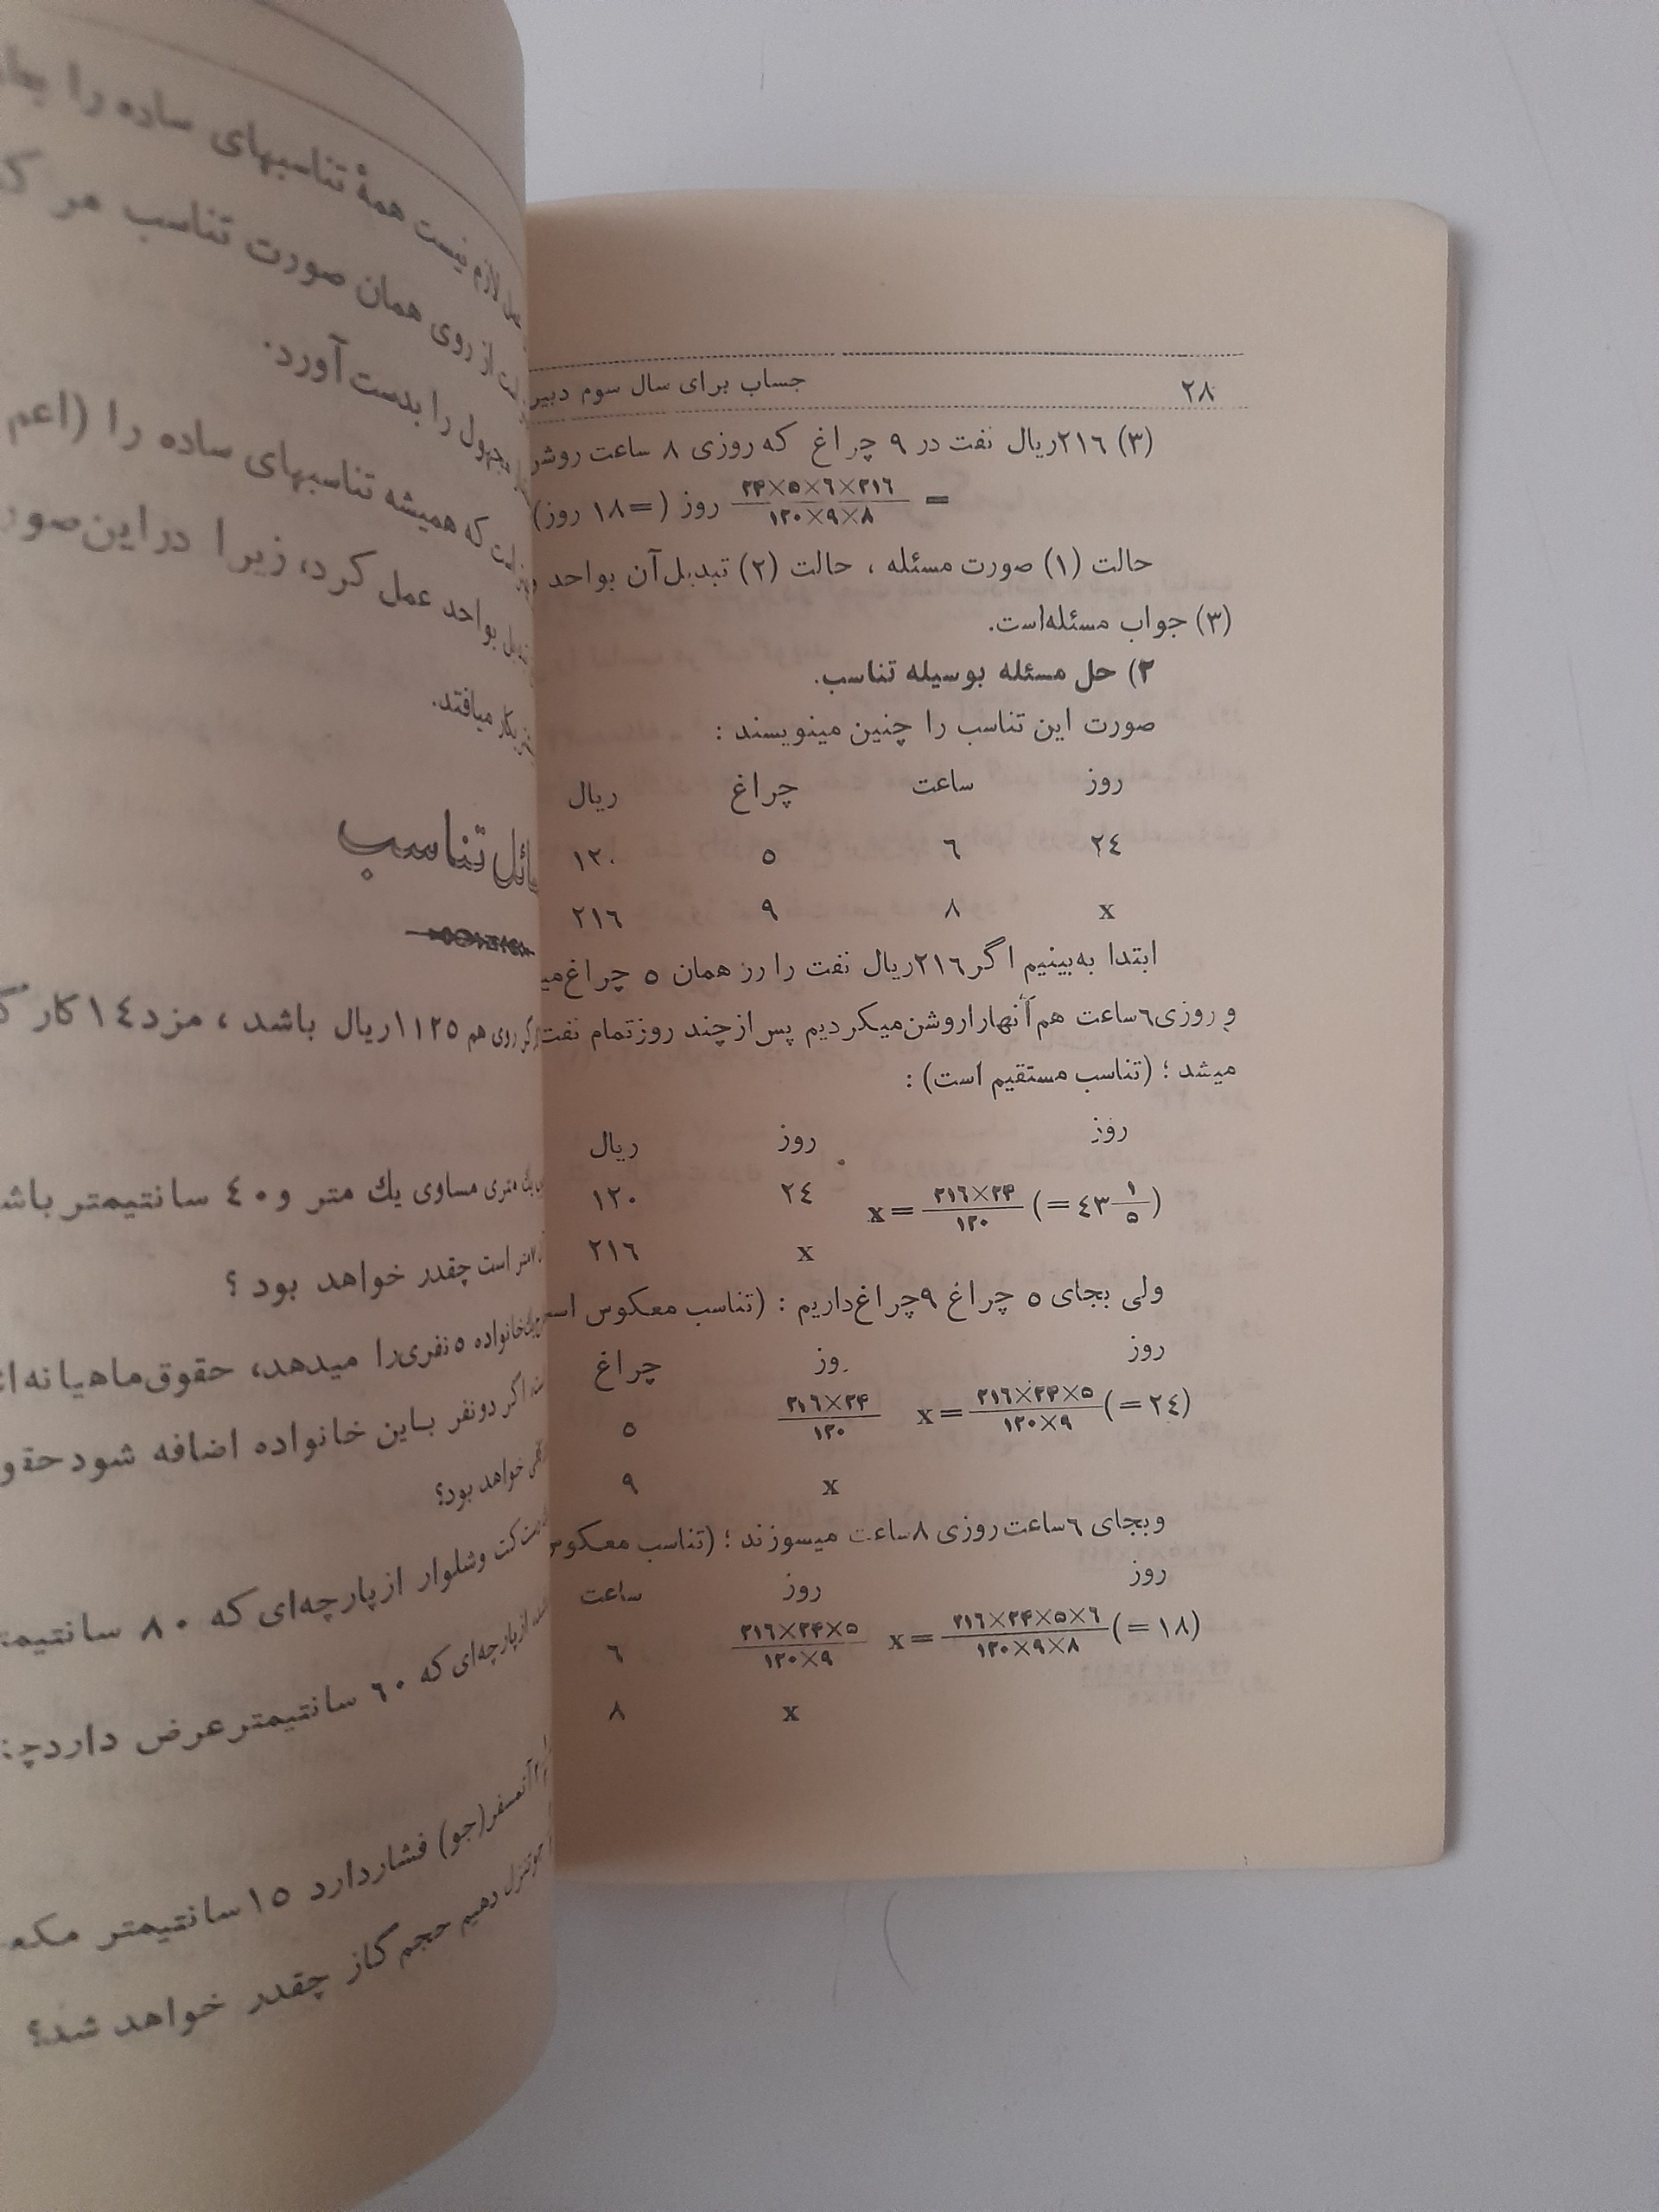 ۲۸ حساب برای سال سوم
(۳) ۲۱٦ریال نفت در ۹ چراغ که روزی ۸ ساعت
= ۲۱٦×٦×۵×۲۴ / ۱۲۰×۹×۸ روز (=۱۸ روز)
حالت (۱) صورت مسئله ، حالت (۲) تبدیل‌آن بواحد
(۳) جواب مسئله‌است.
۲) حل مسئله بوسیله تناسب.
صورت این تناسب را چنین مینویسند :
روز ساعت چراغ ریال
۲٤ ٦ ۵ ۱۲۰
x ۸ ۹ ۲۱٦
ابتدا به‌بینیم اگر ۲۱٦ریال نفت را رز همان ۵ چراغ
و روزی ٦ساعت هم‌آنهاراروشن‌میکردیم پس‌از چند روزتمام نفت
میشد ؛ (تناسب مستقیم است) :
روز روز ریال
x = ۲۱٦×۲۴ / ۱۲۰ (= ٤۳ ۱/۵) ۲٤ ۱۲۰
x ۲۱٦
ولی بجای ۵ چراغ ۹چراغ‌داریم : (تناسب معکوس
روز روز چراغ
x = ۲۱٦×۲۴×۵ / ۱۲۰×۹ (= ۲٤) ۲۱٦×۲۴ / ۱۲۰ ۵
x ۹
وبجای ٦ساعت روزی ۸ساعت میسوزند ؛ (تناسب معکوس
روز روز ساعت
x = ۲۱٦×۲۴×۵×٦ / ۱۲۰×۹×۸ (= ۱۸) ۲۱٦×۲۴×۵ / ۱۲۰×۹ ٦
x ۸
لازم نیست همهٔ تناسبهای ساده را
از روی همان صورت تناسب مر
مجهول را بدست آورد.
که همیشه تناسبهای ساده را (اعم
بواحد عمل کرد، زیرا دراین‌صور
بکار میافتد.
تناسب
روی هم ۱۱۲۵ریال باشد ، مزد ۱٤کار
متری مساوی یك متر و ٤۰ سانتیمتر
است چقدر خواهد بود ؟
خانواده ۵نفری‌را میدهد، حقوق‌ماهیانه
اگر دونفر باین خانواده اضافه شود
خواهد بود؟
کت وشلوار ازپارچه‌ای که ۸۰
ازپارچه‌ای که ٦۰ سانتیمترعرض دارد
آتمسفر(جو) فشاردارد ۱۵سانتیمتر
دهیم حجم گاز چقدر خواهد شد؟